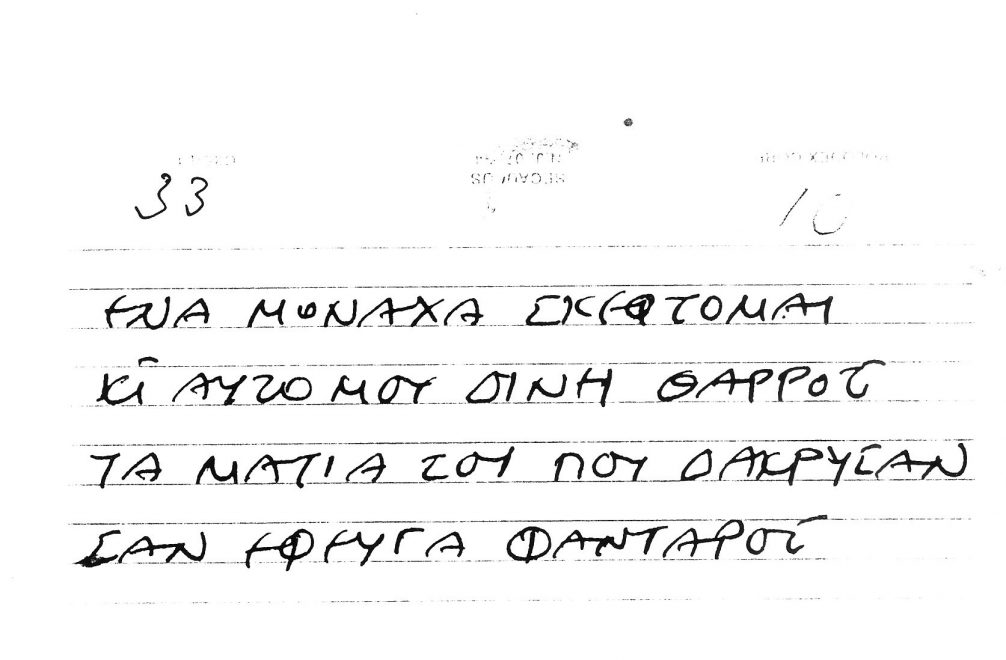 33 10
ΕΝΑ ΜΟΝΑΧΑ ΣΚΕΦΤΟΜΑΙ
ΚΙ ΑΥΤΟ ΜΟΥ ΔΙΝΗ ΘΑΡΡΟΣ
ΤΑ ΜΑΤΙΑ ΣΟΥ ΠΟΥ ΔΑΚΡΥΣΑΝ
ΣΑΝ ΕΦΕΥΓΑ ΦΑΝΤΑΡΟΣ